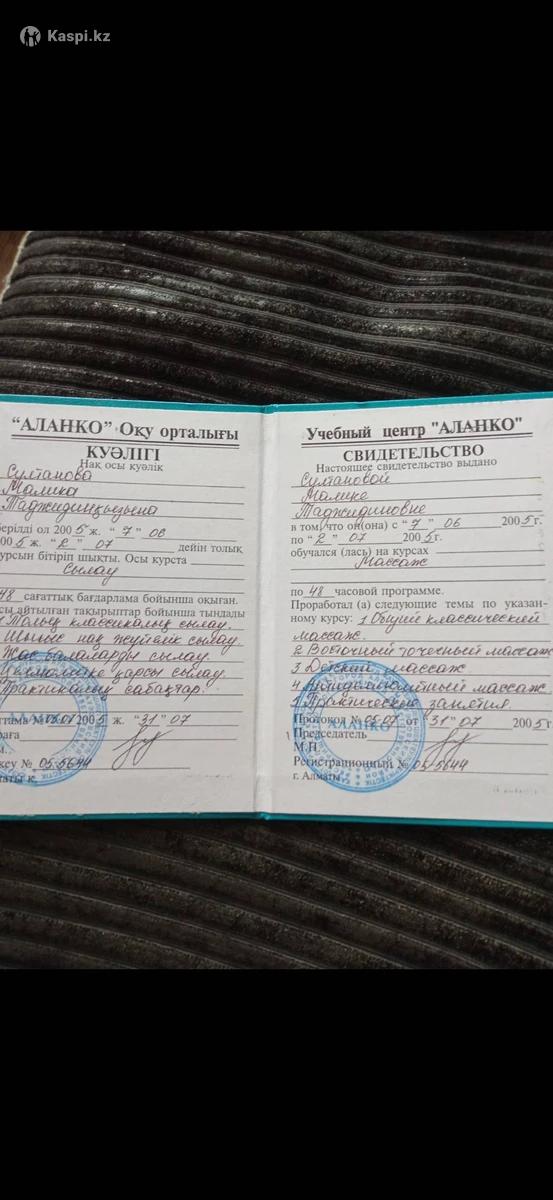 Kaspi.kz
“АЛАНКО” Оқу орталығы
КУӘЛІГІ
Нақ осы куәлік
Султанова
Малика
Таджидинқызына
берілді ол 2005 ж. “7” 06
2005 ж. “2” 07 дейін толық
курсын бітіріп шықты. Осы курста
Сылау
48 сағаттық бағдарлама бойынша оқыған.
айтылған тақырыптар бойынша тындады
1 Толық классикалық сылау.
Шығыс нақ жүйелік сылау.
Жас балаларды сылау.
Целмолитке қарсы сылау.
Практикалық сабақтар.
№ 05.07 2005 ж. “31” 07
№ 05.5644
Алматы қ.
Учебный центр "АЛАНКО"
СВИДЕТЕЛЬСТВО
Настоящее свидетельство выдано
Султановой
Малике
Таджидиновне
в том, что он(она) с “7” 06 2005г.
по “2” 07 2005г.
обучался (лась) на курсах
Массаж
по 48 часовой программе.
Проработал (а) следующие темы по указан-
ному курсу: 1 Общий классический
массаж.
2 Восточный точечный массаж
3 Детский массаж.
4 Антицеллюлитный массаж
5 Практические занятия.
Протокол № 05.07 от “31” 07 2005г
Председатель
М.П.
Регистрационный № 05.5644
г. Алматы
АЛАНКО